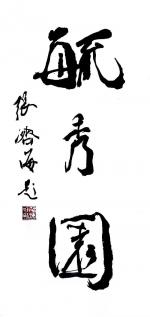 毓秀園
張濟海題